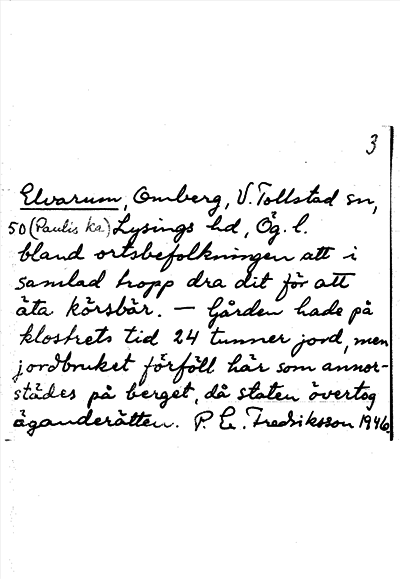 3
Elvarum, Omberg, V. Tollstad sn,
50 (Paulis ka) Lysings hd, Ög. l.
bland ortsbefolkningen att i
samlad hopp dra dit för att
äta körsbär. — Gården hade på
klostrets tid 24 tunner jord, men
jordbruket förföll här som annor-
städes på berget, då staten övertog
äganderätten. P. E. Fredriksson 1946.